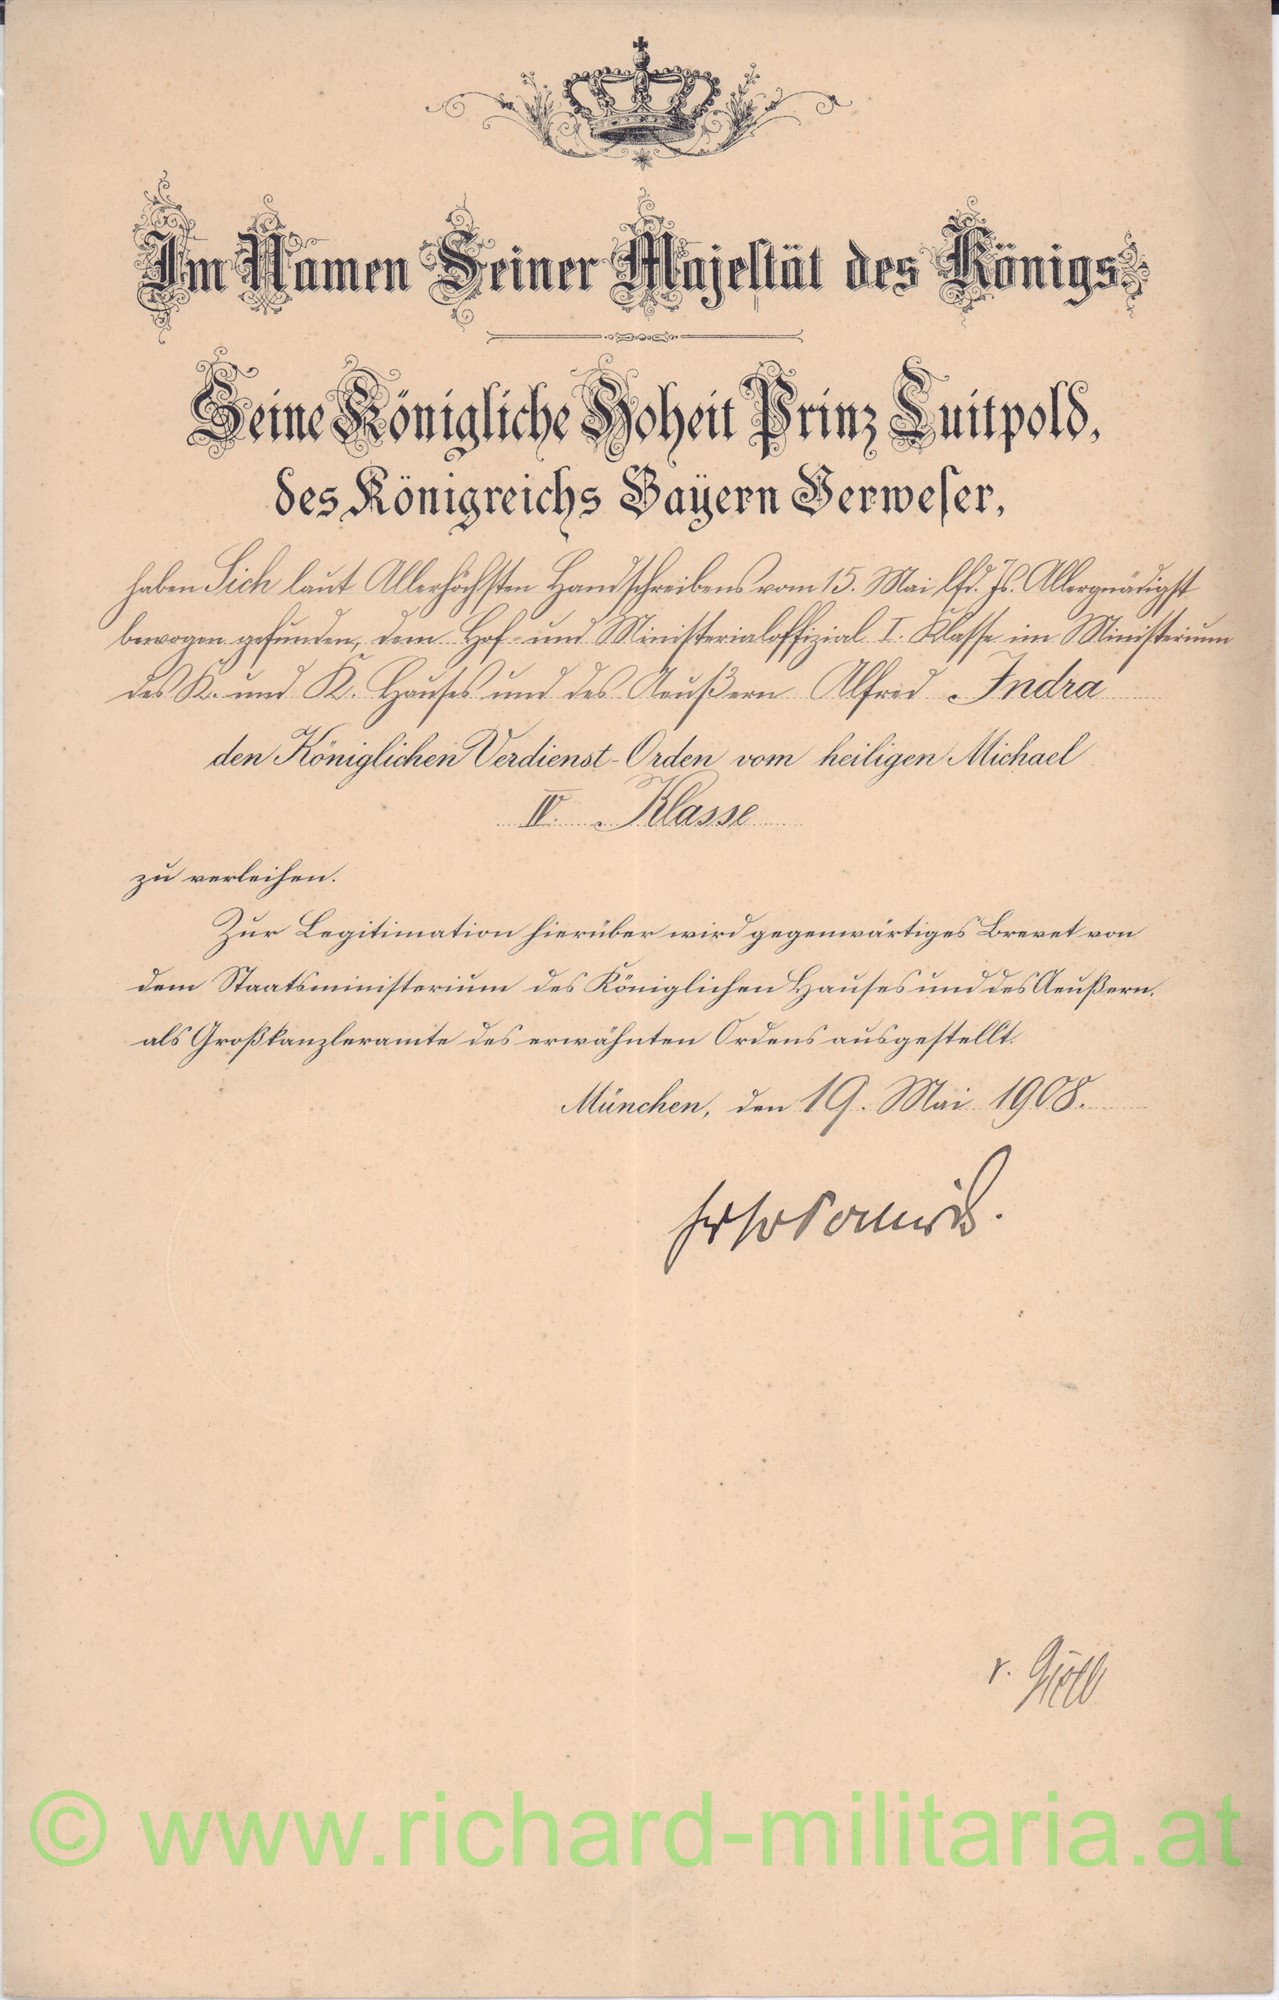 Im Namen Seiner Majestät des Königs.
Seine Königliche Hoheit Prinz Luitpold,
des Königreichs Bayern Verweser,
haben Sich laut Allerhöchsten Handschreibens vom 15. Mai lfd. Js. Allergnädigst
bewogen gefunden, dem Hof- und Ministerialoffizial I. Klasse im Ministerium
des K. und K. Hauses und des Aeußern Alfred Indra
den Königlichen Verdienst-Orden vom heiligen Michael
IV. Klasse
zu verleihen.
Zur Legitimation hierüber wird gegenwärtiges Brevet von
dem Staatsministerium des Königlichen Hauses und des Aeußern,
als Großkanzleramte des erwähnten Ordens ausgestellt.
München, den 19. Mai 1908.
© www.richard-militaria.at